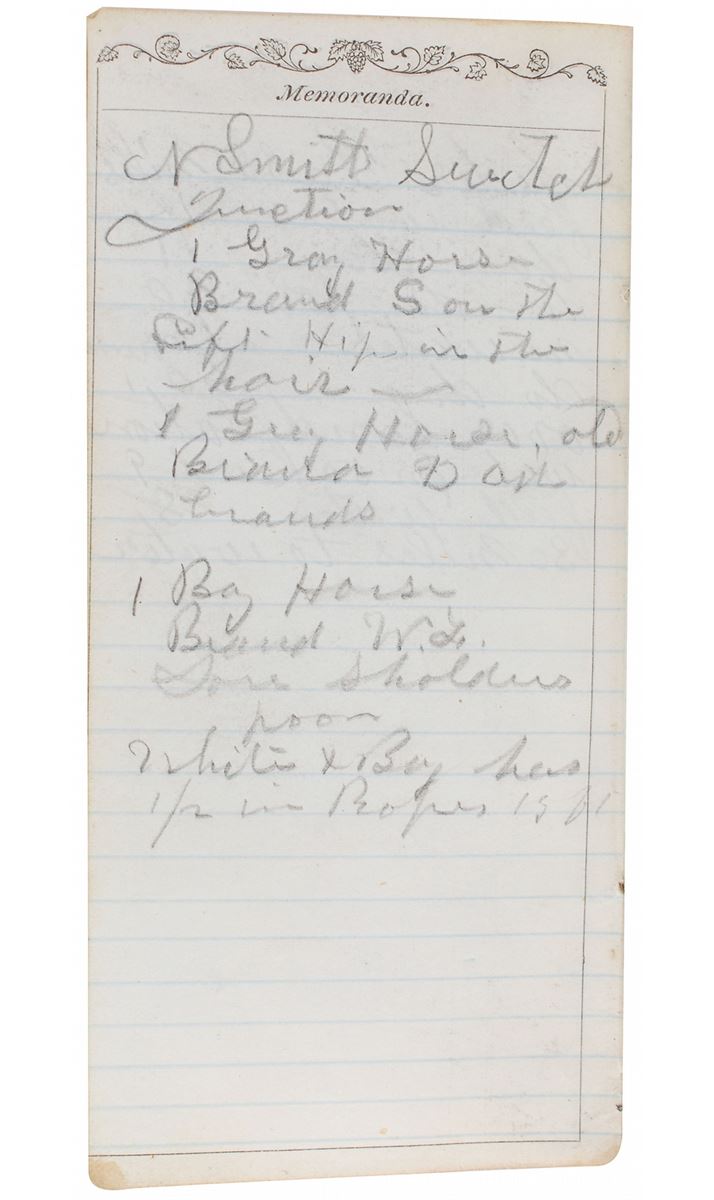 Memoranda.
N Smith Switch
Junction
1 Gray Horse
Brand S on the
Left Hip in the
hair —
1 Horse, old
Brand D
brands
1 Bay Horse
Brand W.
Sore Sholders
poor
White & Bay has
1/2 in Ropes 15 ft